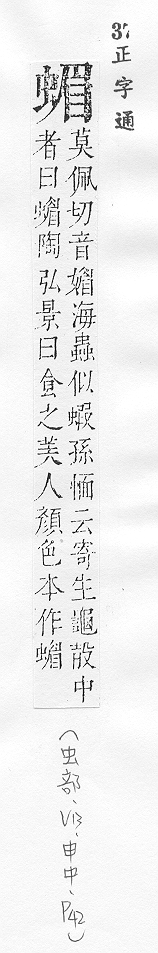 37
正字通
蝞
莫佩切音媚海蟲似蝦孫愐云寄生龜殼中
者曰蝞陶弘景曰食之美人顏色本作蝞
(虫部、V13、申中、P42)